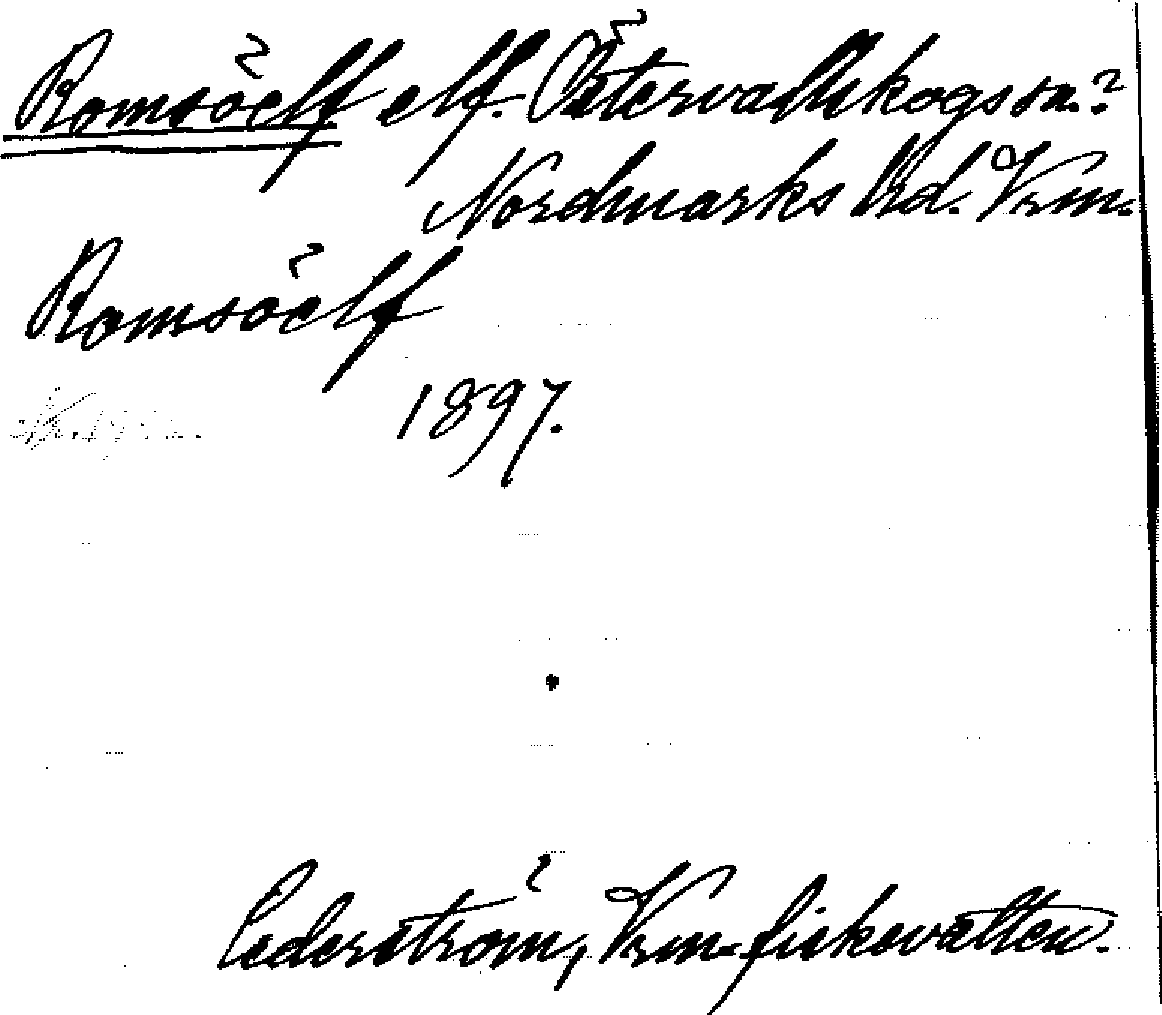 Romsöelf elf. Östervallskogs sn.?
Nordmarks hd. Vrm.
Romsöelf
1897.
Cederström, Vrm. fiskevatten.